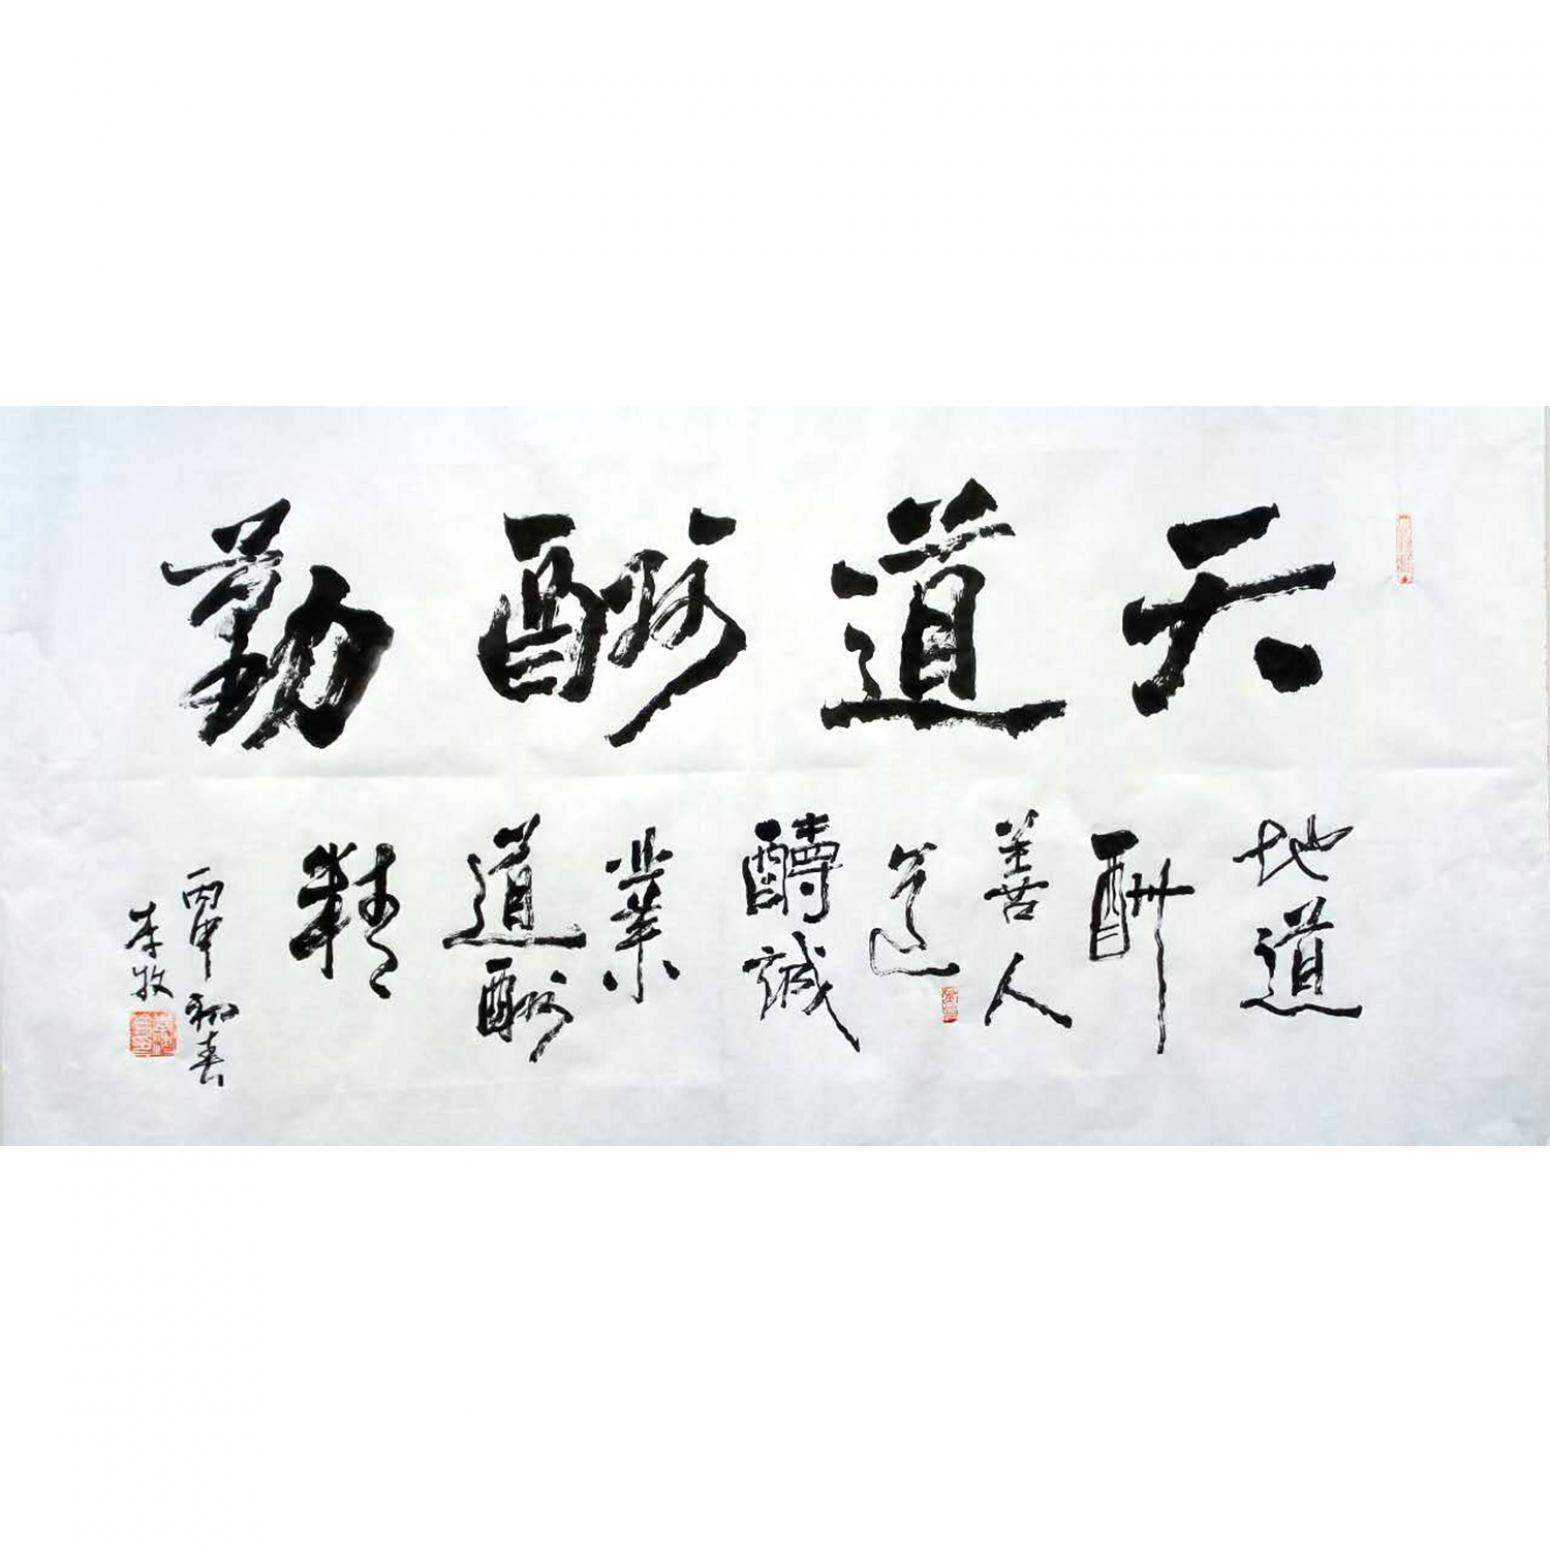 天道酬勤
地道
酬
善人
道
醻誠
業
道酬
精
丙申初春
李牧